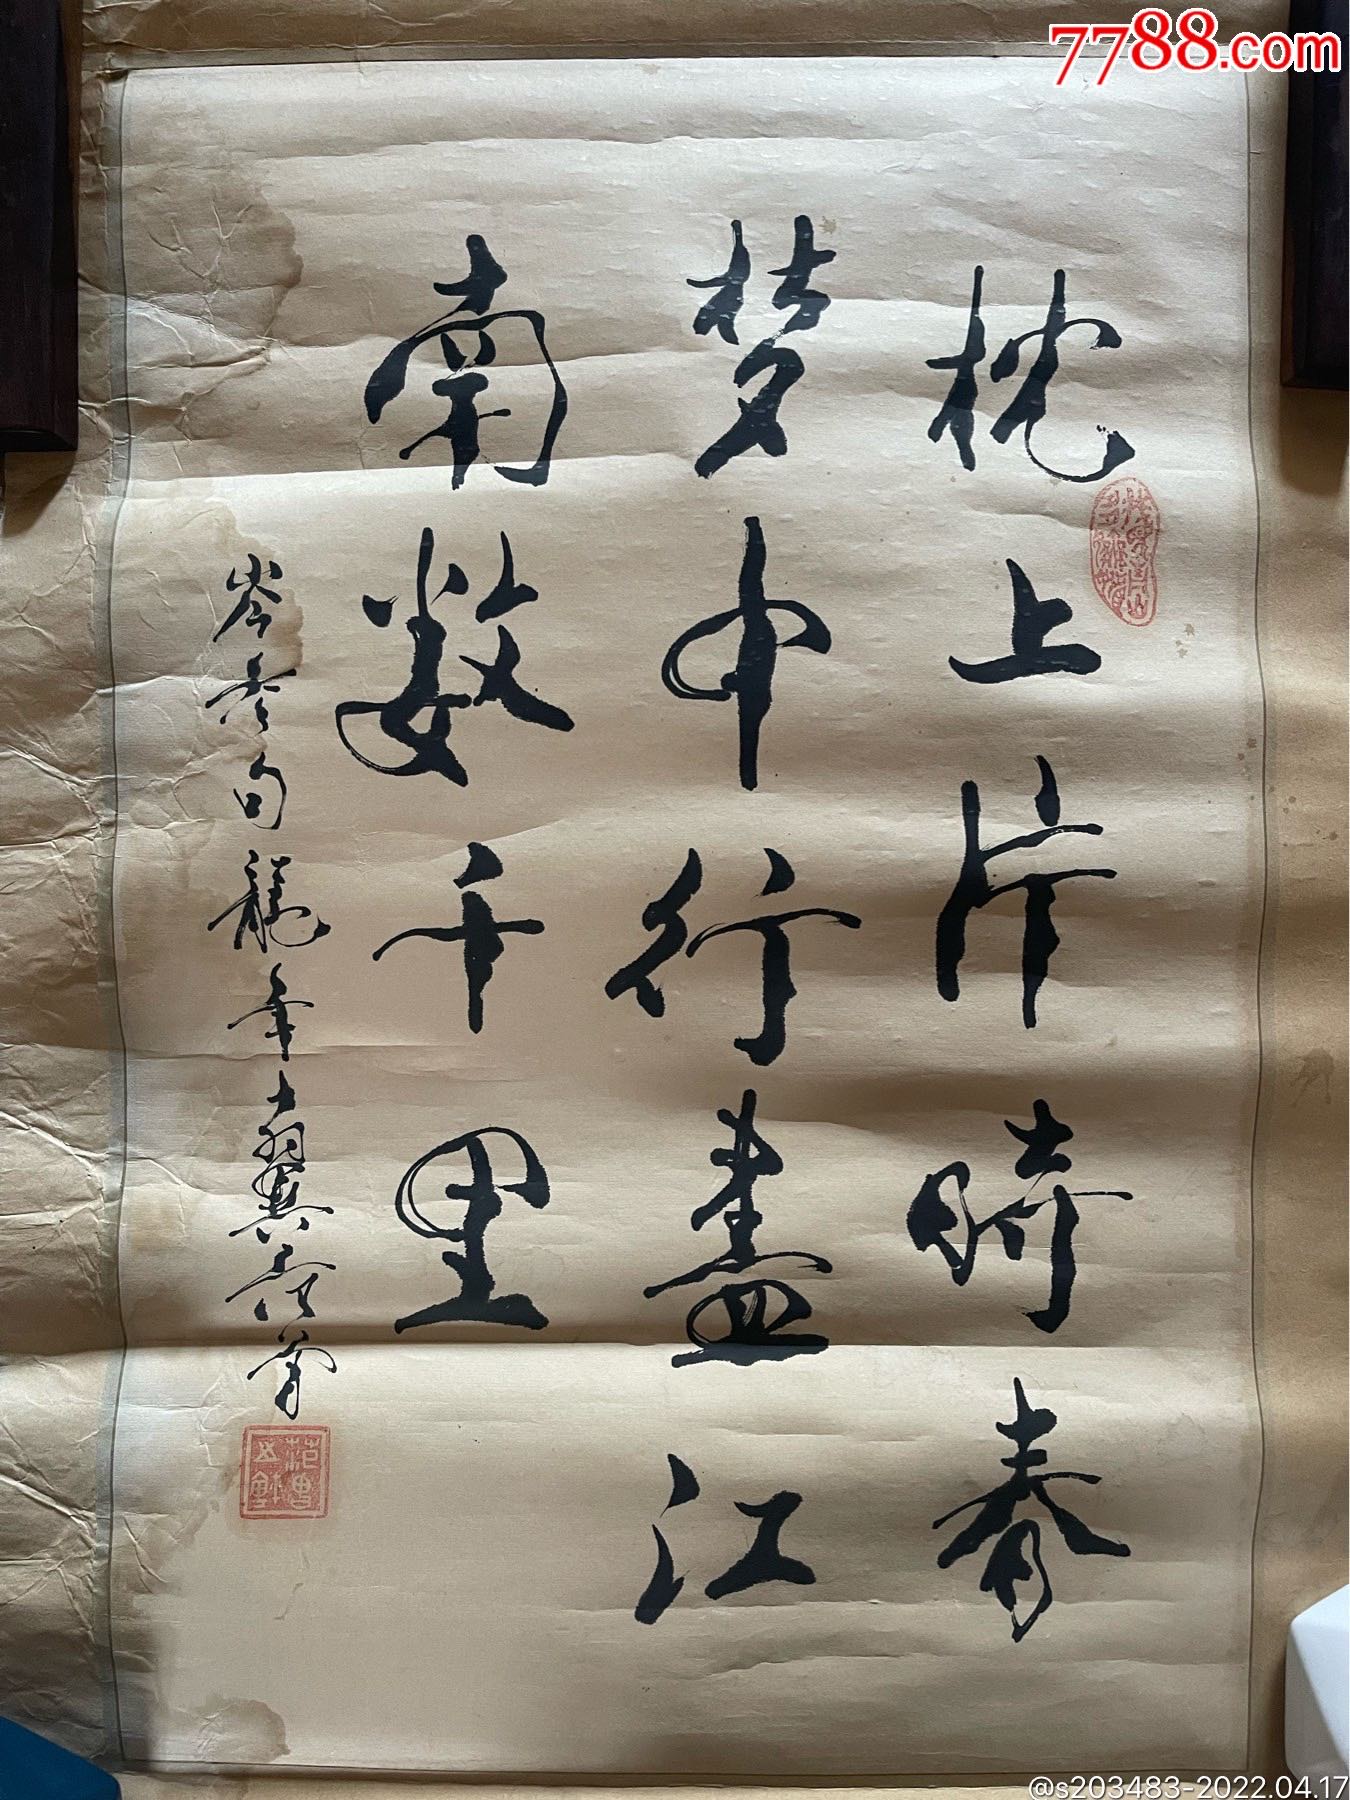 7788.com
枕上片時春
梦中行盡江
南数千里
岑参句龍年十翼范曾
@s203483-2022.04.17